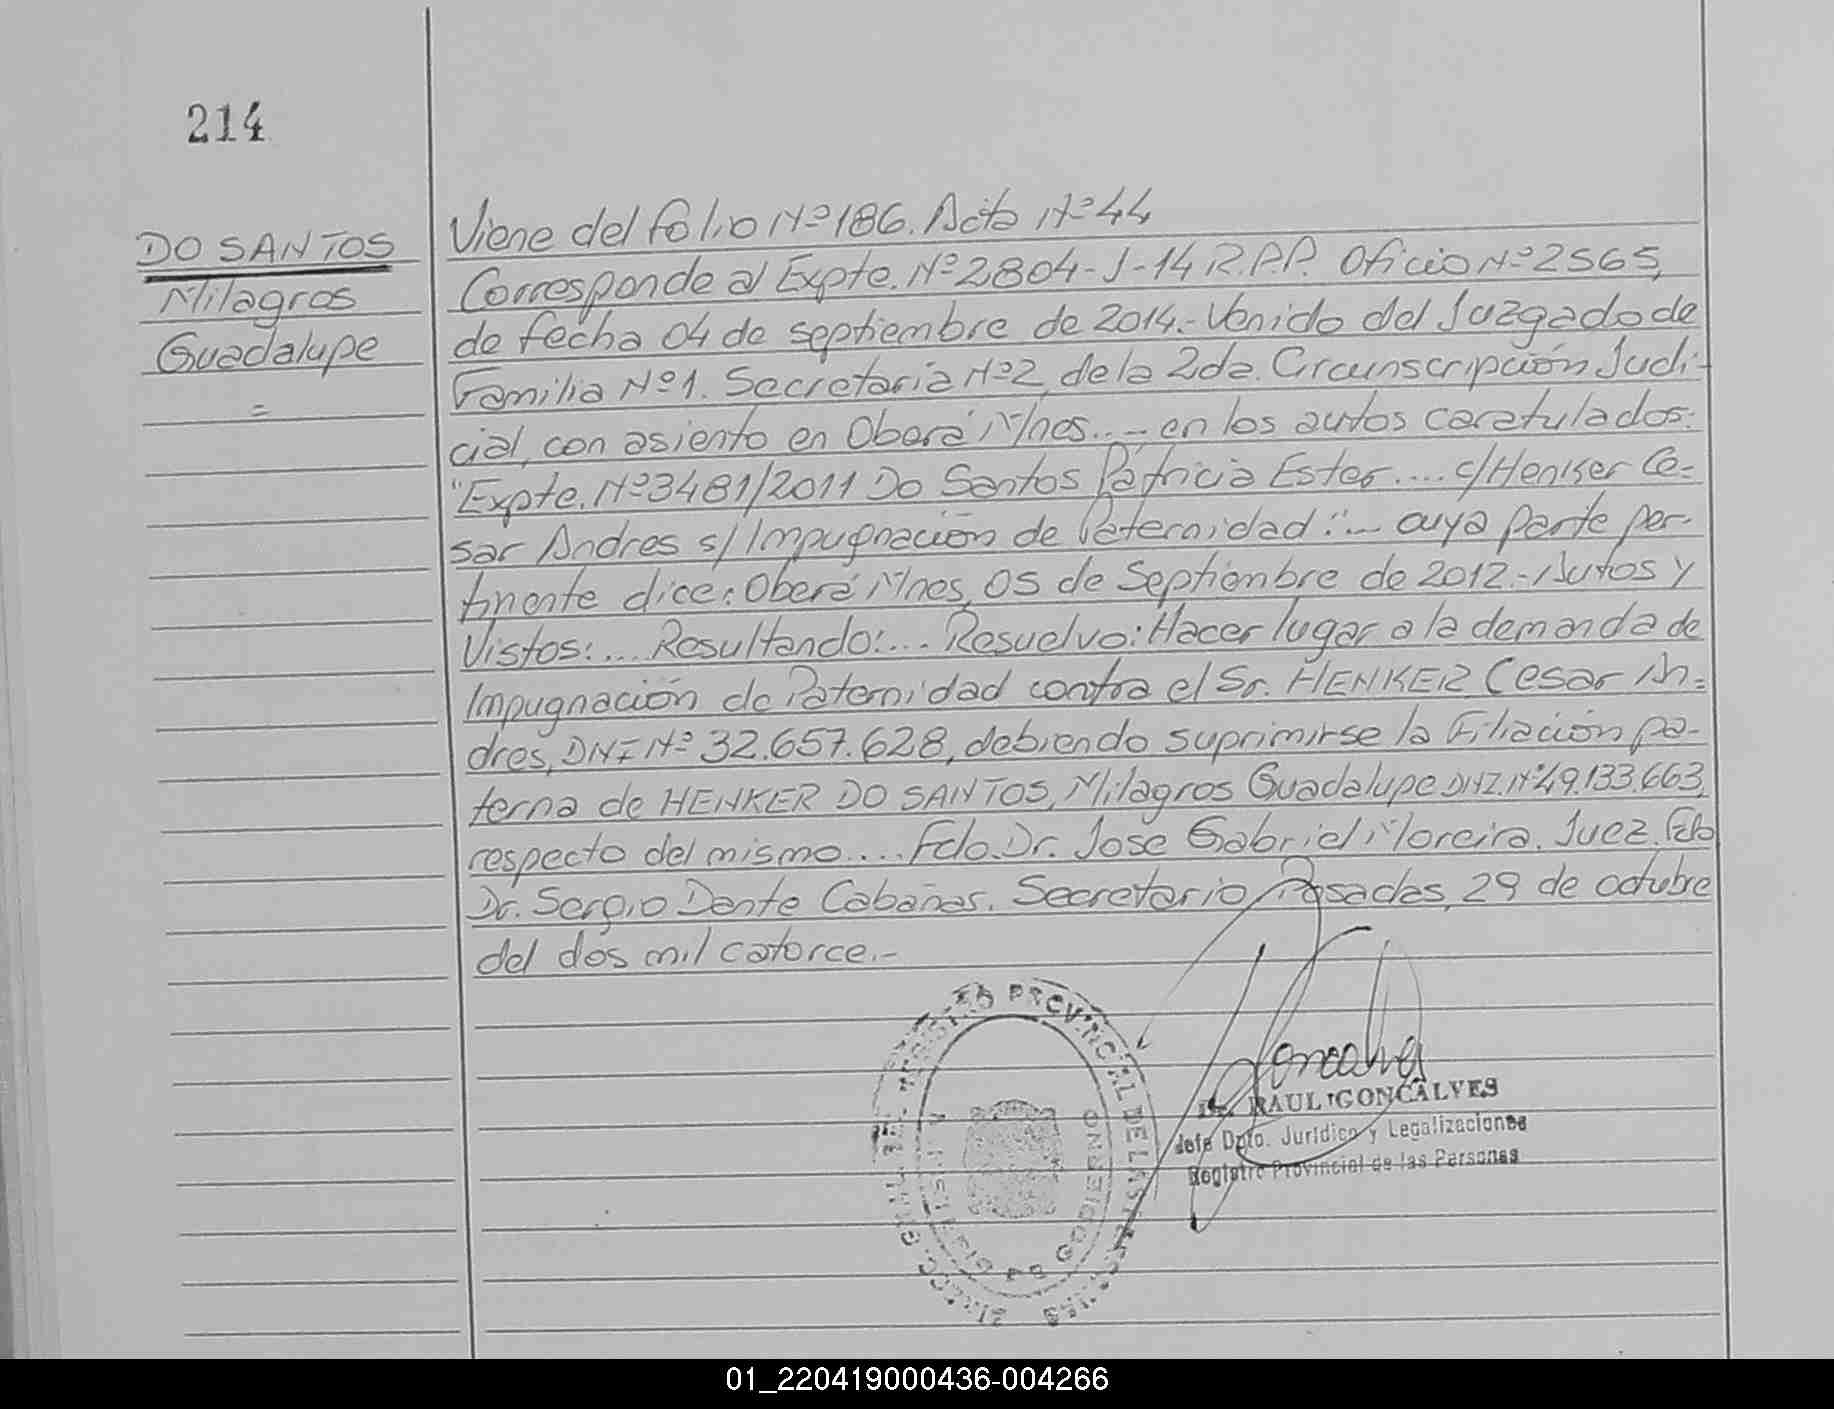 214
DO SANTOS
Milagros
Guadalupe
=
Viene del folio Nº 186. Acta Nº 44
Corresponde al Expte. Nº 2804-J-14 R.P.P. Oficio Nº 2565,
de fecha 04 de septiembre de 2014.- Venido del Juzgado de
Familia Nº 1. Secretaria Nº 2, de la 2da. Circunscripción Judi-
cial, con asiento en Oberá Mnes..- en los autos caratulados:
"Expte. Nº 3481/2011 Do Santos Patricia Ester.... c/Henker Ce=
sar Andres s/Impugnación de Paternidad:"... cuya parte per-
tinente dice: Oberá Mnes, 05 de Septiembre de 2012.- Autos y
Vistos:.... Resultando:.... Resuelvo: Hacer lugar a la demanda de
Impugnación de Paternidad contra el Sr. HENKER Cesar An=
dres, DNI Nº 32.657.628, debiendo suprimirse la Filiación pa-
terna de HENKER DO SANTOS, Milagros Guadalupe DNI. Nº 49.133.663,
respecto del mismo.... Fdo. Dr. Jose Gabriel Moreira. Juez. Fdo
Dr. Sergio Dante Cabañas. Secretario Posadas, 29 de octubre
del dos mil catorce.-
PROVINCIAL DE LAS
GOBIERNO
Goncalves
Dr. RAUL GONCALVES
Jefe Dpto. Jurídico y Legalizaciones
Registro Provincial de las Personas
01_220419000436-004266